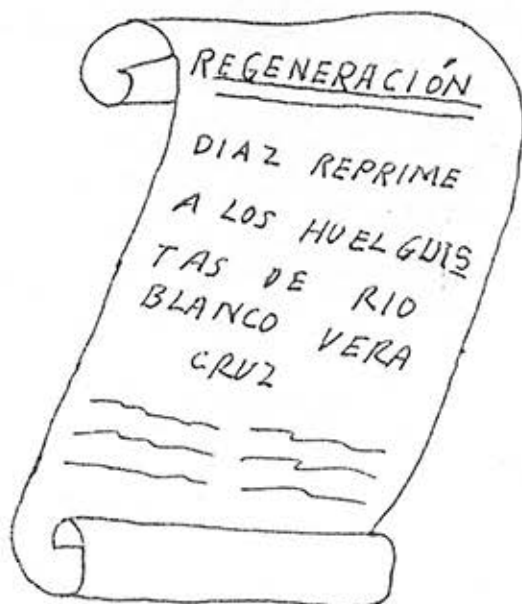 REGENERACIÓN
DIAZ REPRIME
A LOS HUELGUIS
TAS DE RIO
BLANCO VERA
CRUZ